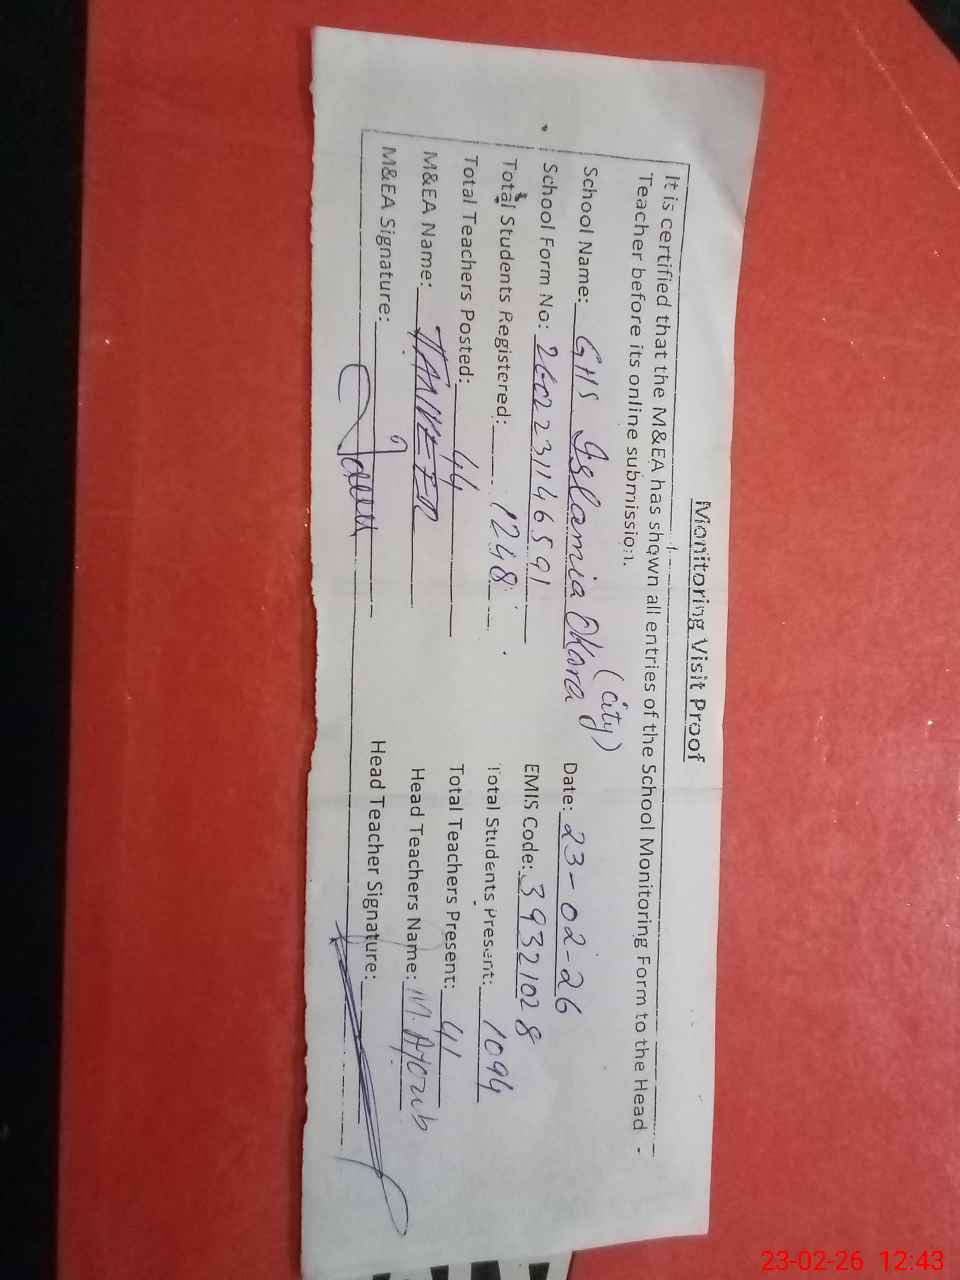 Monitoring Visit Proof
It is certified that the M&EA has shown all entries of the School Monitoring Form to the Head
Teacher before its online submission.
School Name: GHS Islamia Okara (City) Date: 23-02-26
School Form No: 2602231146591 EMIS Code: 39321028
Total Students Registered: 1248 Total Students Present: 1094
Total Teachers Posted: 44 Total Teachers Present: 41
M&EA Name: TANVEER Head Teachers Name: M. Ayoub
M&EA Signature: Head Teacher Signature:
23-02-26 12:43